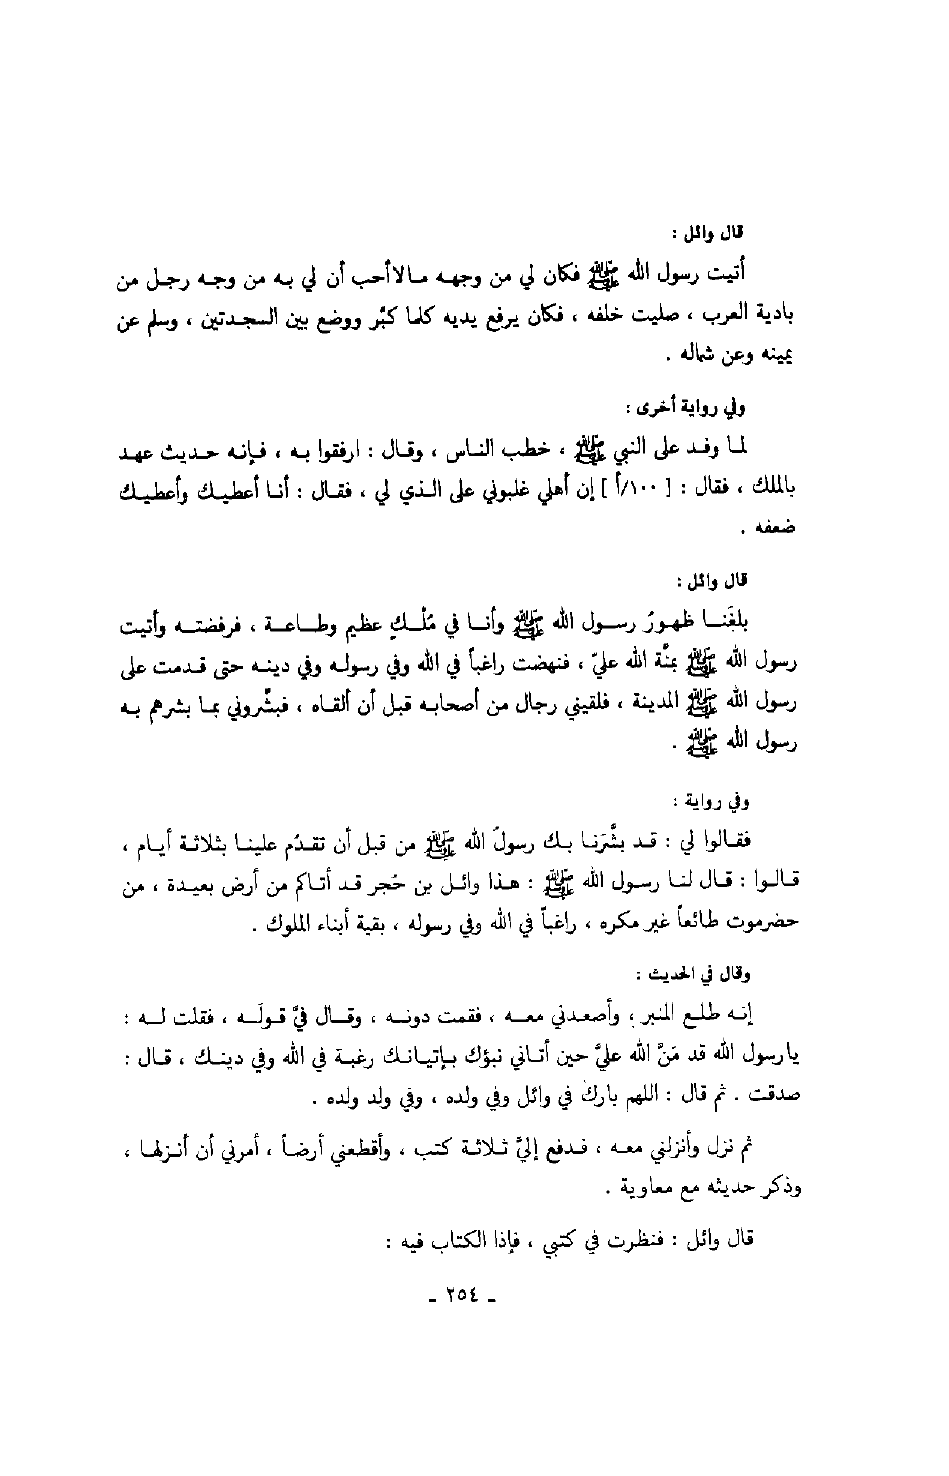 قال وائل :
أتيت رسول الله ﷺ فكان لي من وجهه مالاأحب أن لي به من وجه رجل من
بادية العرب ، صليت خلفه ، فكان يرفع يديه كلما كبَّر ووضع بين السجدتين ، وسلم عن
يمينه وعن شماله .
وفي رواية أخرى :
لما وفد على النبي ﷺ ، خطب الناس ، وقال : ارفقوا به ، فإنه حديث عهد
بالملك ، فقال : [ ١٠٠/أ ] إن أهلي غلبوني على الذي لي ، فقال : أنا أعطيك وأعطيك
ضعفه .
قال وائل :
بلغَنا ظهورُ رسول الله ﷺ وأنا في مُلْكٍ عظيم وطاعة ، فرفضته وأتيت
رسول الله ﷺ بمنَّة الله عليّ ، فنهضت راغباً في الله وفي رسوله وفي دينه حتى قدمت على
رسول الله ﷺ المدينة ، فلقيني رجال من أصحابه قبل أن ألقاه ، فبشَّروني بما بشرهم به
رسول الله ﷺ .
وفي رواية :
فقالوا لي : قد بشَّرَنا بك رسولُ الله ﷺ من قبل أن تقدُم علينا بثلاثة أيام ،
قالوا : قال لنا رسول الله ﷺ : هذا وائل بن حُجر قد أتاكم من أرض بعيدة ، من
حضرموت طائعاً غير مكره ، راغباً في الله وفي رسوله ، بقية أبناء الملوك .
وقال في الحديث :
إنه طلع المنبر ، وأصعدني معه ، فقمت دونه ، وقال فيَّ قولَه ، فقلت له :
يارسول الله قد مَنَّ الله عليَّ حين أتاني نبؤك بإتيانك رغبة في الله وفي دينك ، قال :
صدقت . ثم قال : اللهم بارك في وائل وفي ولده ، وفي ولد ولده .
ثم نزل وأنزلني معه ، فدفع إليَّ ثلاثة كتب ، وأقطعني أرضاً ، أمرني أن أنزلها ،
وذكر حديثه مع معاوية .
قال وائل : فنظرت في كتبي ، فإذا الكتاب فيه :
ـ ٢٥٤ ـ